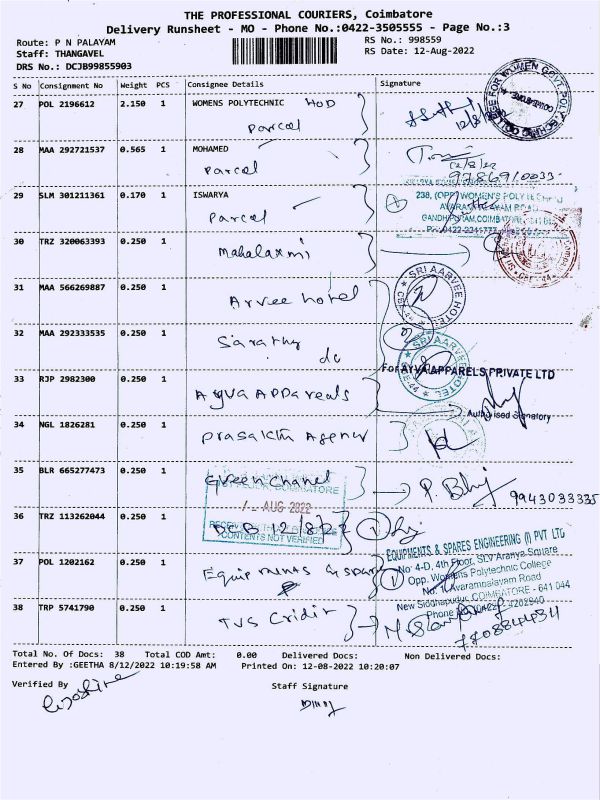 THE PROFESSIONAL COURIERS, Coimbatore
Delivery Runsheet - MO - Phone No.:0422-3505555 - Page No.:3
Route: P N PALAYAM
RS No.: 998559
Staff: THANGAVEL
RS Date: 12-Aug-2022
DRS No.: DCJB99855903
S No Consignment No Weight PCS Consignee Details Signature
27 POL 2196612 2.150 1 WOMENS POLYTECHNIC HOD
Parcel
12/8/22
28 MAA 292721537 0.565 1 MOHAMED
Parcel
12/8/22
29 SLM 301211361 0.170 1 ISWARYA
Parcel
238, (OPP) WOMEN'S POLYTECHNIC
30 TRZ 320063393 0.250 1
Mahalaxmi
31 MAA 566269887 0.250 1
Arvee hotel
SRI AARVEE HOTEL
32 MAA 292333535 0.250 1
Sarathy
do
SRI AARVEE HOTEL
33 RJP 2982300 0.250 1
For AYVA APPARELS PRIVATE LTD
Ayva Appareals
Authorised Signatory
34 NGL 1826281 0.250 1
Prasakth Agency
35 BLR 665277473 0.250 1
Green Chanel
P. Bhij
9943033335
36 TRZ 113262044 0.250 1
AUG 2022
DCB 12/8/22
CONTENTS NOT VERIFIED
37 POL 1202162 0.250 1
Equipments & spares
EQUIPMENTS & SPARES ENGINEERING (I) PVT LTD
No: 4-D, 4th Floor, SLV Aranya Square
Opp. Womens Polytechnic College
No: 1, Avarampalayam Road
New Siddhapudur, COIMBATORE - 641 044
38 TRP 5741790 0.250 1
TVS Cridit
Total No. Of Docs: 38 Total COD Amt: 0.00 Delivered Docs: Non Delivered Docs:
Entered By :GEETHA 8/12/2022 10:19:58 AM Printed On: 12-08-2022 10:20:07
Verified By
Staff Signature